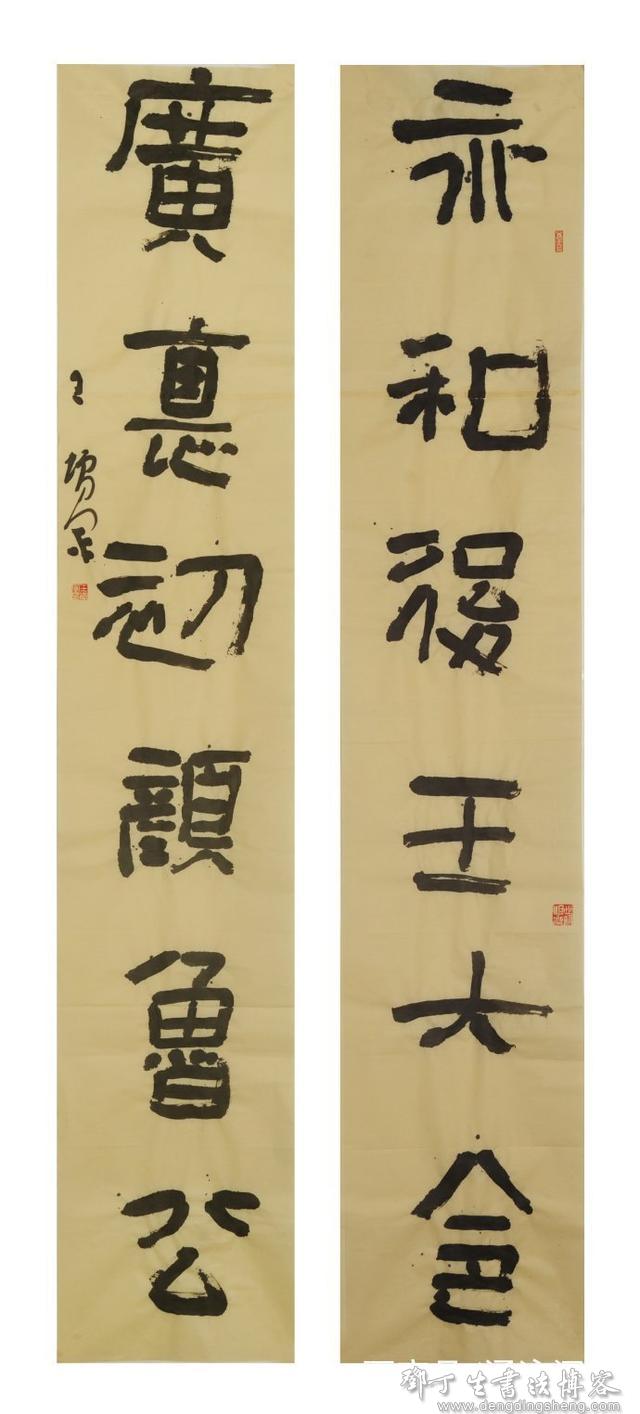 永和後王大令
廣悳初顏魯公
王
鄧丁生書法博客
www.dengdingsheng.com